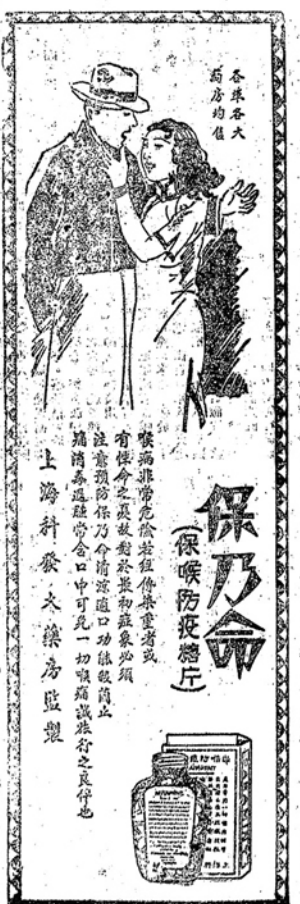 各埠各大
药房均售
保乃命
(保喉防疫糖片)
喉病非常危險若經傳染重者或
有性命之憂故對於最初症象必須
注意預防保乃命清涼適口功能殺菌止
痛消毒退常含口中可免一切喉痛誠旅行之良伴也
上海科發大藥房監製